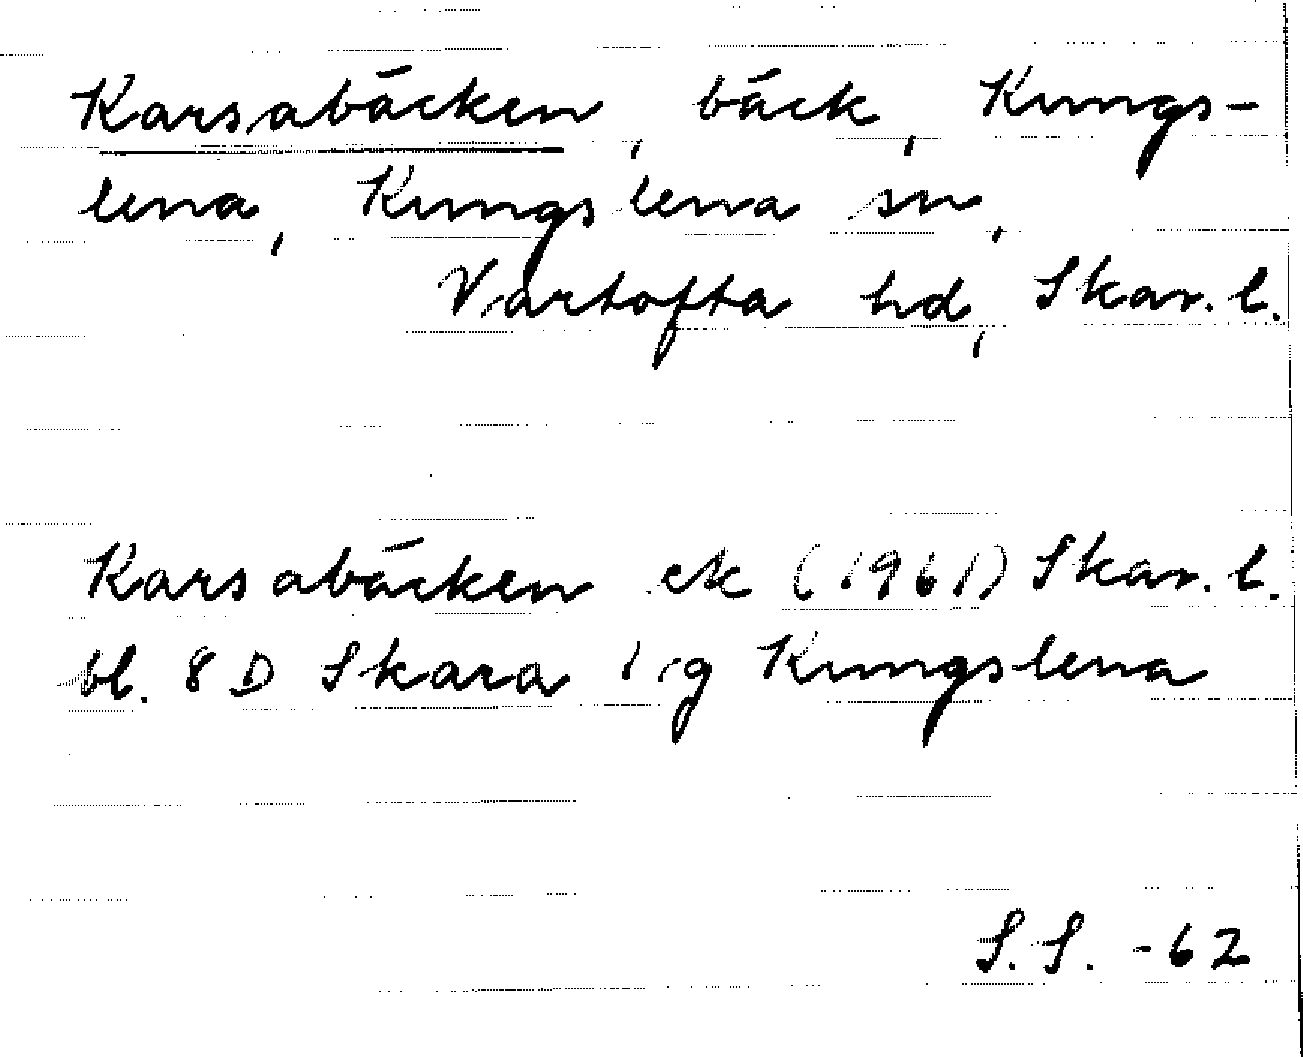 Karsabäcken, bäck, Kungs-
lena, Kungslena sn,
Vartofta hd, Skar. l.
Karsabäcken ek (1961) Skar. l.
bl. 8 D Skara 1 g Kungslena
S.S. -62